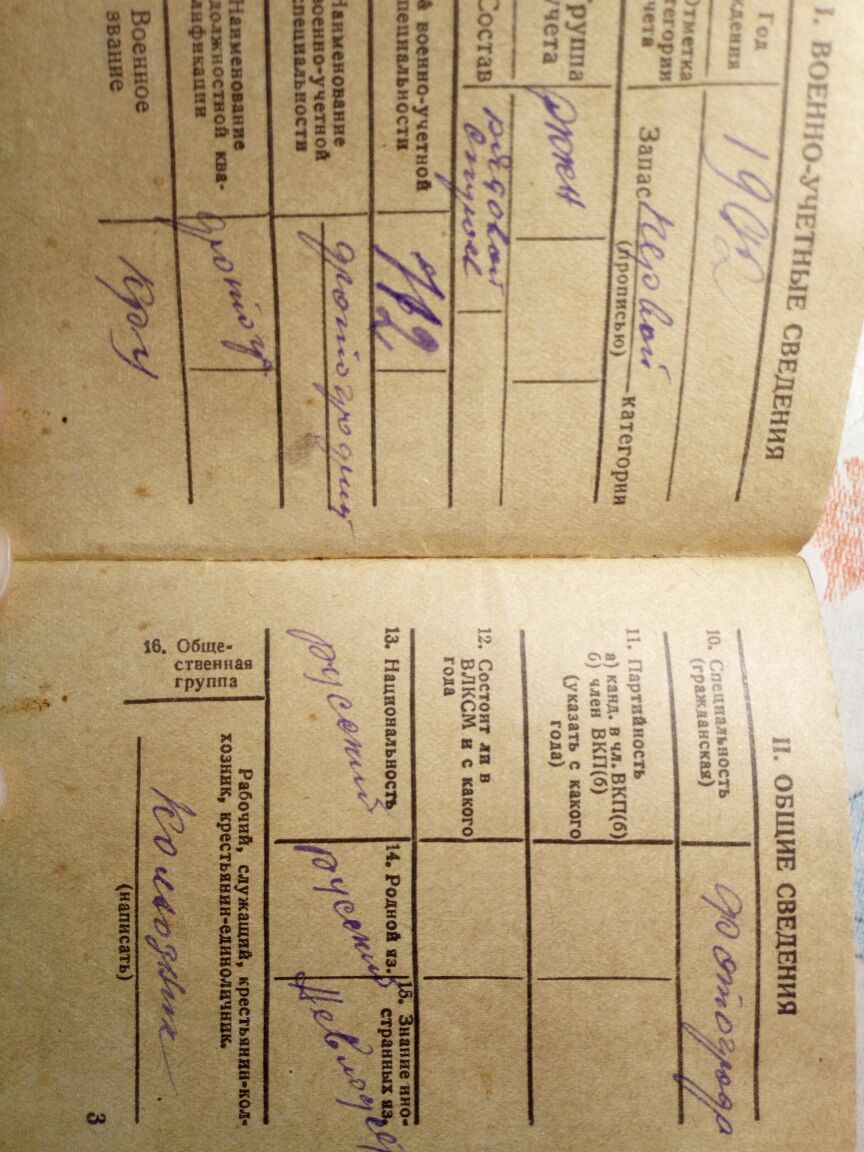 I. ВОЕННО-УЧЕТНЫЕ СВЕДЕНИЯ
Год
ждения
1902
Отметка
атегории
чета
Запас первой категории
(прописью)
Группа
учета
РККА
Состав
рядовой
состав
й военно-учетной
пециальности
Наименование
военно-учетной
специальности
Наименование
должностной ква-
лификации
Военное
звание
II. ОБЩИЕ СВЕДЕНИЯ
10. Специальность
(гражданская)
11. Партийность
а) канд. в чл. ВКП(б)
б) член ВКП(б)
(указать с какого
года)
12. Состоит ли в
ВЛКСМ и с какого
года
13. Национальность
русский
14. Родной яз.
русский
15. Знание ино-
странных яз.
Не владеет
16. Обще-
ственная
группа
Рабочий, служащий, крестьянин-кол-
хозник, крестьянин-единоличник.
Колхозник
(написать)
3